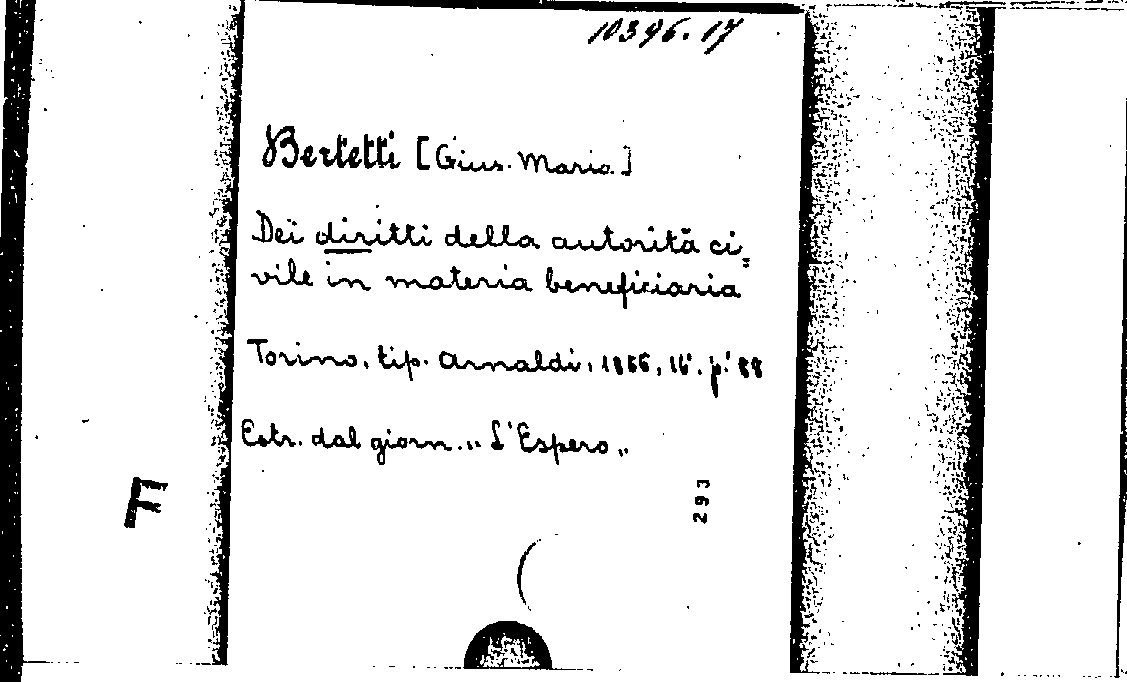 10396.17
Bertetti [Gius. Maria.]
Dei diritti della autorità ci=
vile in materia beneficiaria
Torino, tip. Arnaldi, 1866, 16°. p. 88
Estr. dal giorn. „ L'Espero „
F
293